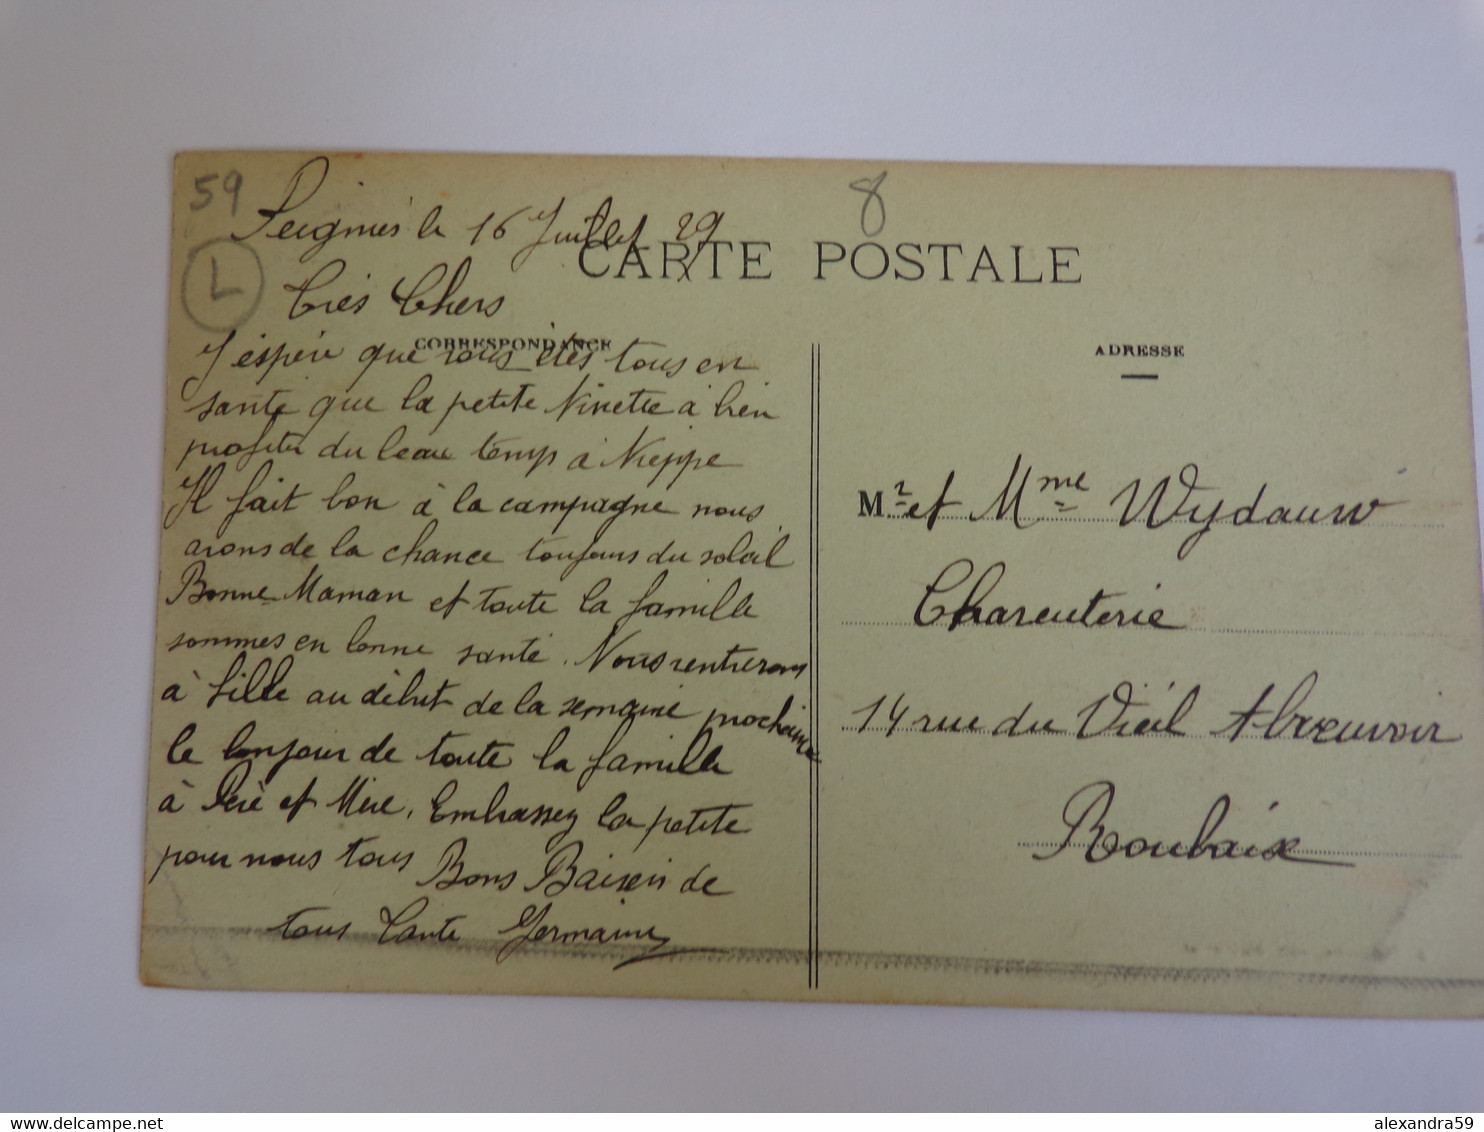 59
8
L
le 16 Juillet 29
CARTE POSTALE
Très Chers
CORRESPONDANCE
J'espère que vous êtes tous en
santé que la petite Ninette à bien
profiter du beau temp à Nieppe
Il fait bon à la campagne nous
avons de la chance toujours du soleil
Bonne Maman et toute la famille
sommes en bonne santé. Nous rentrerons
à Lille au début de la semaine prochaine
le bonjour de toute la famille
à Père et Mère. Embrassez la petite
pour nous tous Bons Baisers de
tous Tante Germaine
ADRESSE
Mr et Mme Wydauw
Charcuterie
14 rue du Vieil Abreuvoir
Roubaix
alexandra59